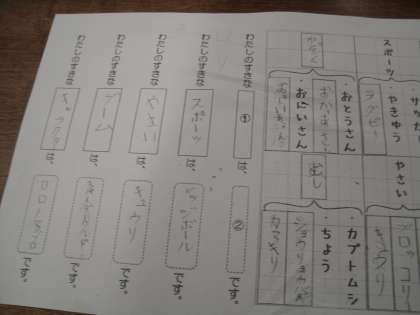 スポーツ
・サッカー
・やきゅう
ラグビー
やさい
ブロッコリー
キュウリ
かぞく
・おとうさん
おかあさん
・おにいさん
虫
・カブトムシ
・ちょう
カマキリ
わたしのすきな ① は、 ② です。
わたしのすきな スポーツ は、 です。
わたしのすきな やさい は、 キュウリ です。
わたしのすきな ゲーム は、 です。
わたしのすきな は、 ロロノアゾロ です。